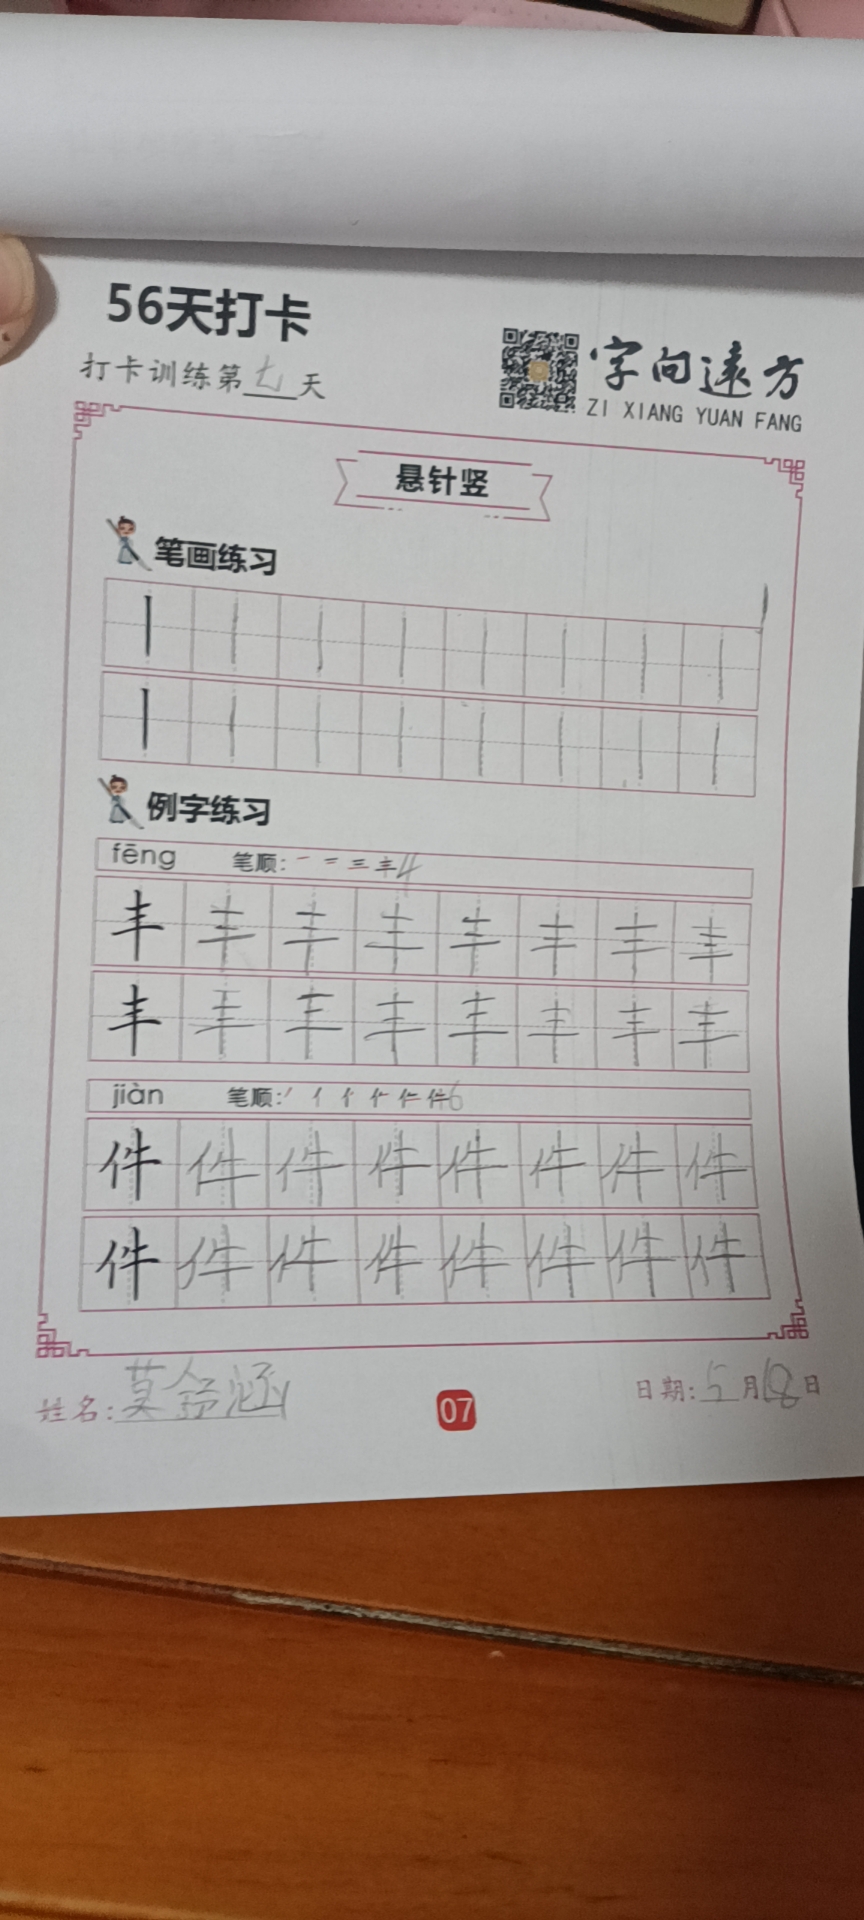 56天打卡
打卡训练第七天
字向远方
ZI XIANG YUAN FANG
悬针竖
笔画练习
例字练习
fēng 笔顺: 一 二 三 丰 4
丰 丰 丰 丰 丰 丰 丰 丰
丰 丰 丰 丰 丰 丰 丰 丰
jiàn 笔顺: 6
件 件 件 件 件 件 件 件
件 件 件 件 件 件 件 件
姓名: 莫 涵
07
日期: 5月18日